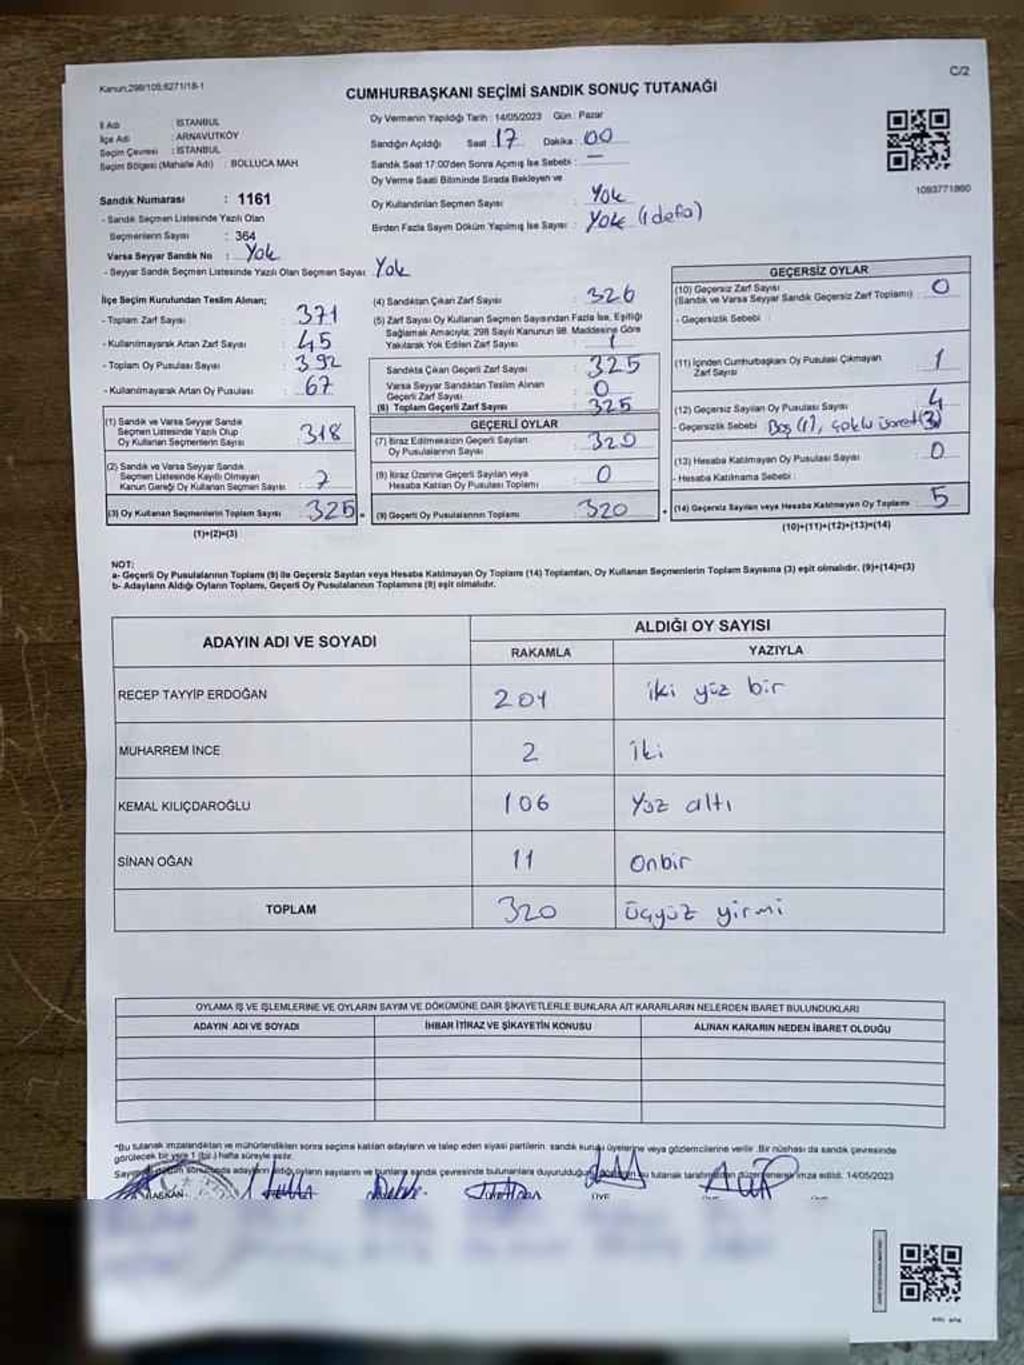 Kanun;298/105,6271/18-1
C/2
CUMHURBAŞKANI SEÇİMİ SANDIK SONUÇ TUTANAĞI
İl Adı : İSTANBUL
İlçe Adı : ARNAVUTKÖY
Seçim Çevresi : İSTANBUL
Seçim Bölgesi (Mahalle Adı) : BOLLUCA MAH
Sandık Numarası : 1161
- Sandık Seçmen Listesinde Yazılı Olan
Seçmenlerin Sayısı : 364
Varsa Seyyar Sandık No : Yok
- Seyyar Sandık Seçmen Listesinde Yazılı Olan Seçmen Sayısı Yok
Oy Vermenin Yapıldığı Tarih : 14/05/2023 Gün : Pazar
Sandığın Açıldığı Saat : 17 Dakika : 00
Sandık Saat 17:00'den Sonra Açılmış İse Sebebi : —
Oy Verme Saati Bitiminde Sırada Bekleyen ve
Oy Kullandırılan Seçmen Sayısı : Yok
Birden Fazla Sayım Döküm Yapılmış İse Sayısı : Yok (1 defa)
1093771860
İlçe Seçim Kurulundan Teslim Alınan;
- Toplam Zarf Sayısı : 371
- Kullanılmayarak Artan Zarf Sayısı : 45
- Toplam Oy Pusulası Sayısı : 392
- Kullanılmayarak Artan Oy Pusulası : 67
(1) Sandık ve Varsa Seyyar Sandık
Seçmen Listesinde Yazılı Olup
Oy Kullanan Seçmenlerin Sayısı : 318
(2) Sandık ve Varsa Seyyar Sandık
Seçmen Listesinde Kayıtlı Olmayan
Kanun Gereği Oy Kullanan Seçmen Sayısı : 7
(3) Oy Kullanan Seçmenlerin Toplam Sayısı : 325
(1)+(2)=(3)
(4) Sandıktan Çıkan Zarf Sayısı : 326
(5) Zarf Sayısı Oy Kullanan Seçmen Sayısından Fazla İse, Eşitliği
Sağlamak Amacıyla; 298 Sayılı Kanunun 98. Maddesine Göre
Yakılarak Yok Edilen Zarf Sayısı : 1
Sandıkta Çıkan Geçerli Zarf Sayısı : 325
Varsa Seyyar Sandıktan Teslim Alınan
Geçerli Zarf Sayısı : 0
(6) Toplam Geçerli Zarf Sayısı : 325
GEÇERLİ OYLAR
(7) İtiraz Edilmeksizin Geçerli Sayılan
Oy Pusulalarının Sayısı : 320
(8) İtiraz Üzerine Geçerli Sayılan veya
Hesaba Katılan Oy Pusulası Toplamı : 0
(9) Geçerli Oy Pusulalarının Toplamı : 320
GEÇERSİZ OYLAR
(10) Geçersiz Zarf Sayısı
(Sandık ve Varsa Seyyar Sandık Geçersiz Zarf Toplamı) : 0
- Geçersizlik Sebebi :
(11) İçinden Cumhurbaşkanı Oy Pusulası Çıkmayan
Zarf Sayısı : 1
(12) Geçersiz Sayılan Oy Pusulası Sayısı : 4
- Geçersizlik Sebebi : Boş (1), çoklu işaret (3)
(13) Hesaba Katılmayan Oy Pusulası Sayısı : 0
- Hesaba Katılmama Sebebi :
(14) Geçersiz Sayılan veya Hesaba Katılmayan Oy Toplamı : 5
(10)+(11)+(12)+(13)=(14)
NOT:
a- Geçerli Oy Pusulalarının Toplamı (9) ile Geçersiz Sayılan veya Hesaba Katılmayan Oy Toplamı (14) Toplamları, Oy Kullanan Seçmenlerin Toplam Sayısına (3) eşit olmalıdır. (9)+(14)=(3)
b- Adayların Aldığı Oyların Toplamı, Geçerli Oy Pusulalarının Toplamına (9) eşit olmalıdır.
ADAYIN ADI VE SOYADI
ALDIĞI OY SAYISI
RAKAMLA
YAZIYLA
RECEP TAYYİP ERDOĞAN 201 iki yüz bir
MUHARREM İNCE 2 İki
KEMAL KILIÇDAROĞLU 106 Yüz altı
SİNAN OĞAN 11 Onbir
TOPLAM 320 Üçyüz yirmi
OYLAMA İŞ VE İŞLEMLERİNE VE OYLARIN SAYIM VE DÖKÜMÜNE DAİR ŞİKAYETLERLE BUNLARA AİT KARARLARIN NELERDEN İBARET BULUNDUKLARI
ADAYIN ADI VE SOYADI
İHBAR İTİRAZ VE ŞİKAYETİN KONUSU
ALINAN KARARIN NEDEN İBARET OLDUĞU
*Bu tutanak imzalandıktan ve mühürlendikten sonra seçime katılan adayların ve talep eden siyasi partilerin, sandık kurulu üyelerine veya gözlemcilerine verilir. Bir nüshası da sandık çevresinde
görülecek bir yere 1 (bir) hafta süreyle asılır.
sonucunda adayların aldığı oyların sayılarını ve bunların sandık çevresinde bulunanlara duyurulduğunu bu tutanak tarafımızdan düzenlenerek imza edildi. 14/05/2023
BAŞKAN
ÜYE